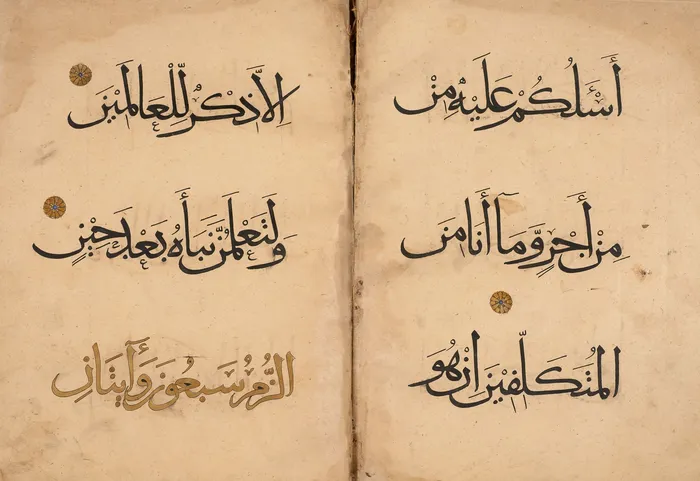 أَسْئَلُكُمْ عَلَيْهِ مِنْ
مِنْ أَجْرٍ وَّمَآ أَنَا مِنَ
المُتَكَلِّفِينَ إِنْ هُوَ
إِلَّا ذِكْرٌ لِّلْعَالَمِينَ
وَلَتَعْلَمُنَّ نَبَأَهُ بَعْدَ حِينٍ
الزُّمَرُ سَبْعُونَ وَآيَتَانِ